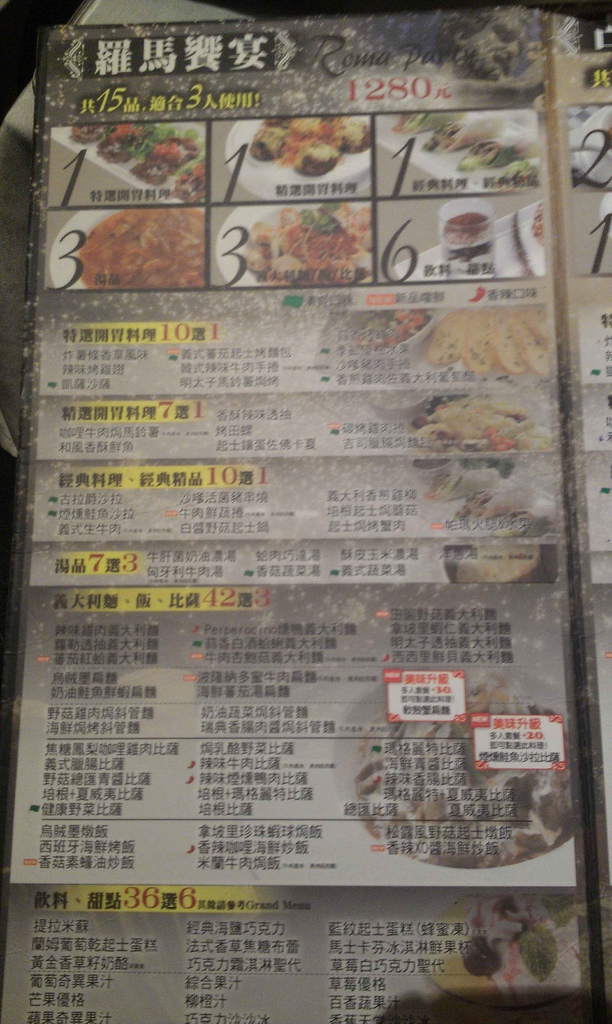 羅馬饗宴 Roma Party
1280元
共15品,適合3人使用!
1 特選開胃料理
1 精選開胃料理
1 經典料理、經典精品
3 湯品
3 義大利麵/飯/比薩
6 飲料、甜點
素食口味 新品嚐鮮 香辣口味
特選開胃料理10選1
炸薯條香草風味 義式蕃茄起士烤麵包
辣味烤雞翅 韓式辣味牛肉手捲 沙嗲豬肉手捲
凱薩沙薩 明太子馬鈴薯焗烤 香煎雞肉佐義大利葡萄醋
精選開胃料理7選1 香酥辣味透抽
咖哩牛肉焗馬鈴薯 烤田螺 碳烤雞肉捲
和風香酥鮮魚 起士鑲蛋佐佛卡夏 吉司臘腸焗麵包
經典料理、經典精品10選1
古拉爵沙拉 沙嗲活菌豬串燒 義大利香煎雞柳
煙燻鮭魚沙拉 牛肉鮮蔬捲 培根起士焗蘑菇
義式生牛肉 白醬野菇起士鍋 起士焗烤蟹肉 帕瑪火腿&水果
湯品7選3 牛肝菌奶油濃湯 蛤肉巧達湯 酥皮玉米濃湯 洋蔥湯
匈牙利牛肉湯 香菇蔬菜湯 義式蔬菜湯
義大利麵、飯、比薩42選3
辣味雞肉義大利麵 Perperocino燻鴨義大利麵 田園野菇義大利麵
羅勒透抽義大利麵 蒜香白酒蛤蜊義大利麵 拿坡里蝦仁義大利麵
蕃茄紅蛤義大利麵 牛肉杏鮑菇義大利麵 明太子透抽義大利麵
西西里鮮貝義大利麵
烏賊墨扁麵 波隆納多蜜牛肉扁麵
奶油鮭魚鮮蝦扁麵 海鮮蕃茄湯扁麵
NEW 美味升級
多人套餐+30元
即可點選此料理!
軟殼蟹扁麵
野菇雞肉焗斜管麵 奶油蔬菜焗斜管麵
海鮮焗烤斜管麵 瑞典香腸肉醬焗斜管麵
NEW 美味升級
多人套餐+20元
即可點選此料理!
煙燻鮭魚沙拉比薩
焦糖鳳梨咖哩雞肉比薩 焗乳酪野菜比薩 瑪格麗特比薩
義式臘腸比薩 辣味牛肉比薩 海鮮青醬比薩
野菇總匯青醬比薩 辣味煙燻鴨肉比薩 辣味香腸比薩
培根+夏威夷比薩 培根+瑪格麗特比薩 瑪格麗特+夏威夷比薩
健康野菜比薩 培根比薩 總匯比薩 夏威夷比薩
烏賊墨燉飯 拿坡里珍珠蝦球焗飯 松露風野菇起士燉飯
西班牙海鮮烤飯 香辣咖哩海鮮炒飯 香辣XO醬海鮮炒飯
香菇素蠔油炒飯 米蘭牛肉焗飯
飲料、甜點36選6 其餘請參考Grand Menu
提拉米蘇 經典海鹽巧克力 藍紋起士蛋糕(蜂蜜凍)
蘭姆葡萄乾起士蛋糕 法式香草焦糖布蕾 馬士卡芬冰淇淋鮮果杯
黃金香草籽奶酪 巧克力霜淇淋聖代 草莓白巧克力聖代
葡萄奇異果汁 綜合果汁 草莓優格
芒果優格 柳橙汁 百香蔬果汁
蘋果奇異果汁 巧克力沙沙冰